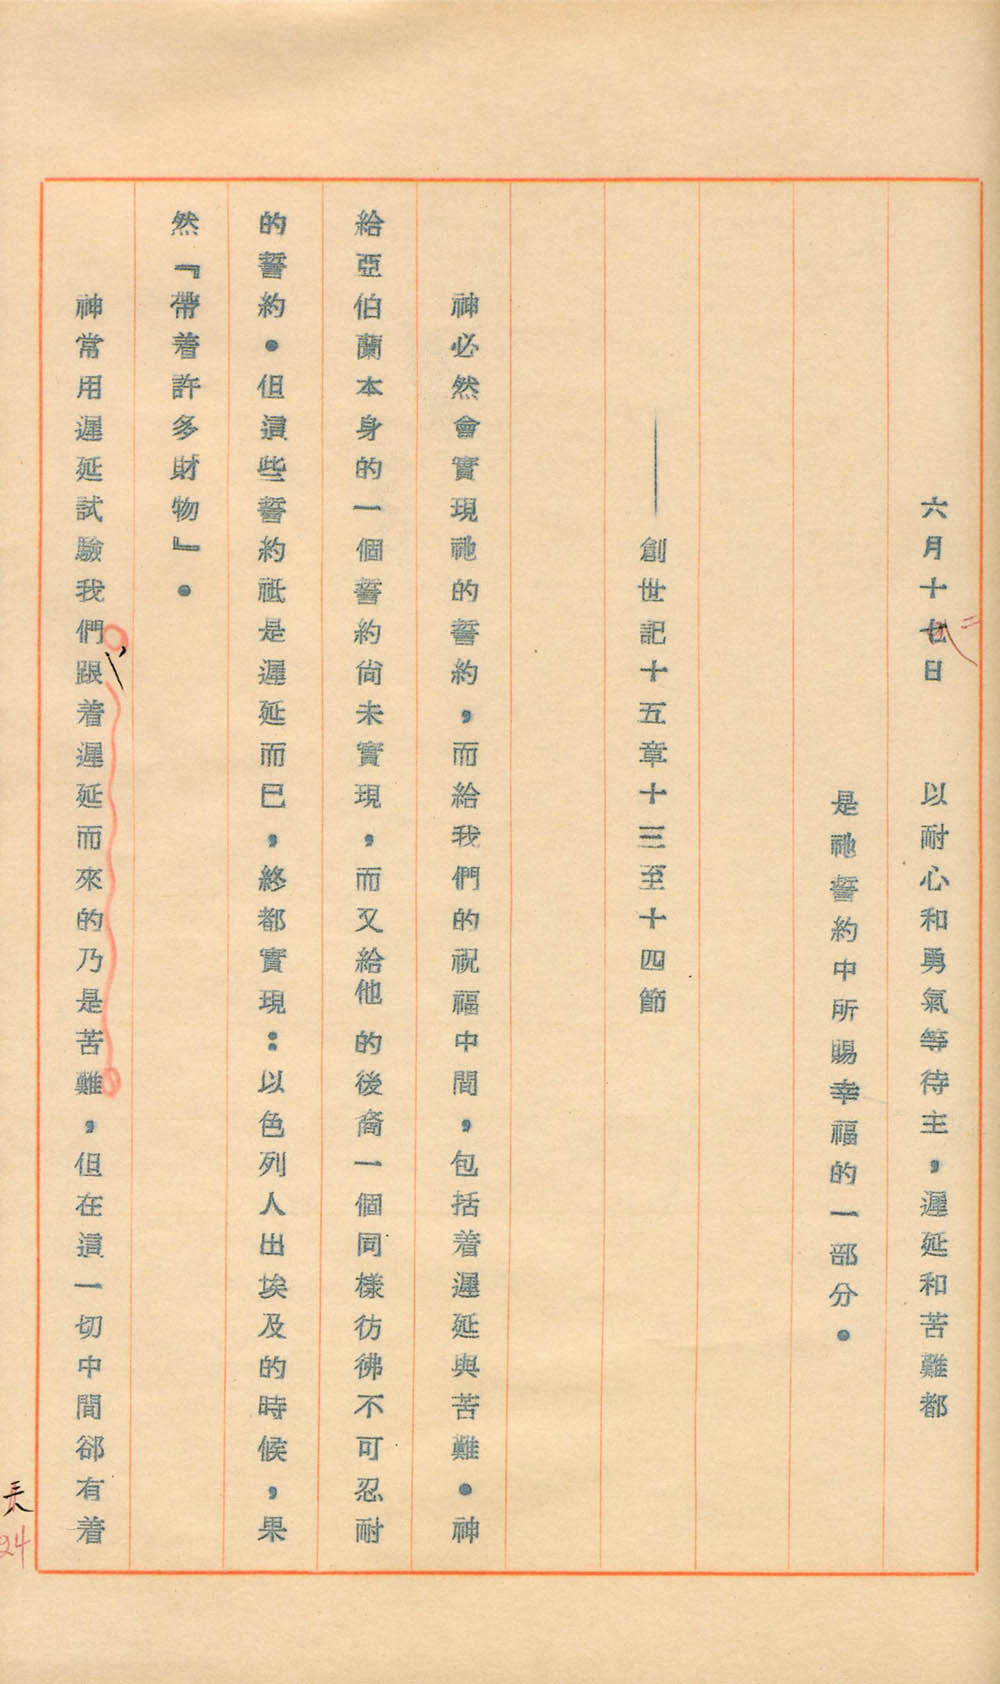 六月十七日　以耐心和勇氣等待主，遲延和苦難都
二
是祂誓約中所賜幸福的一部分。
——創世記十五章十三至十四節
神必然會實現祂的誓約，而給我們的祝福中間，包括着遲延與苦難。神
給亞伯蘭本身的一個誓約尚未實現，而又給他的後裔一個同樣彷彿不可忍耐
的誓約。但這些誓約祗是遲延而已，終都實現：以色列人出埃及的時候，果
然『帶着許多財物』。
神常用遲延試驗我們跟着遲延而來的乃是苦難，但在這一切中間郤有着
24